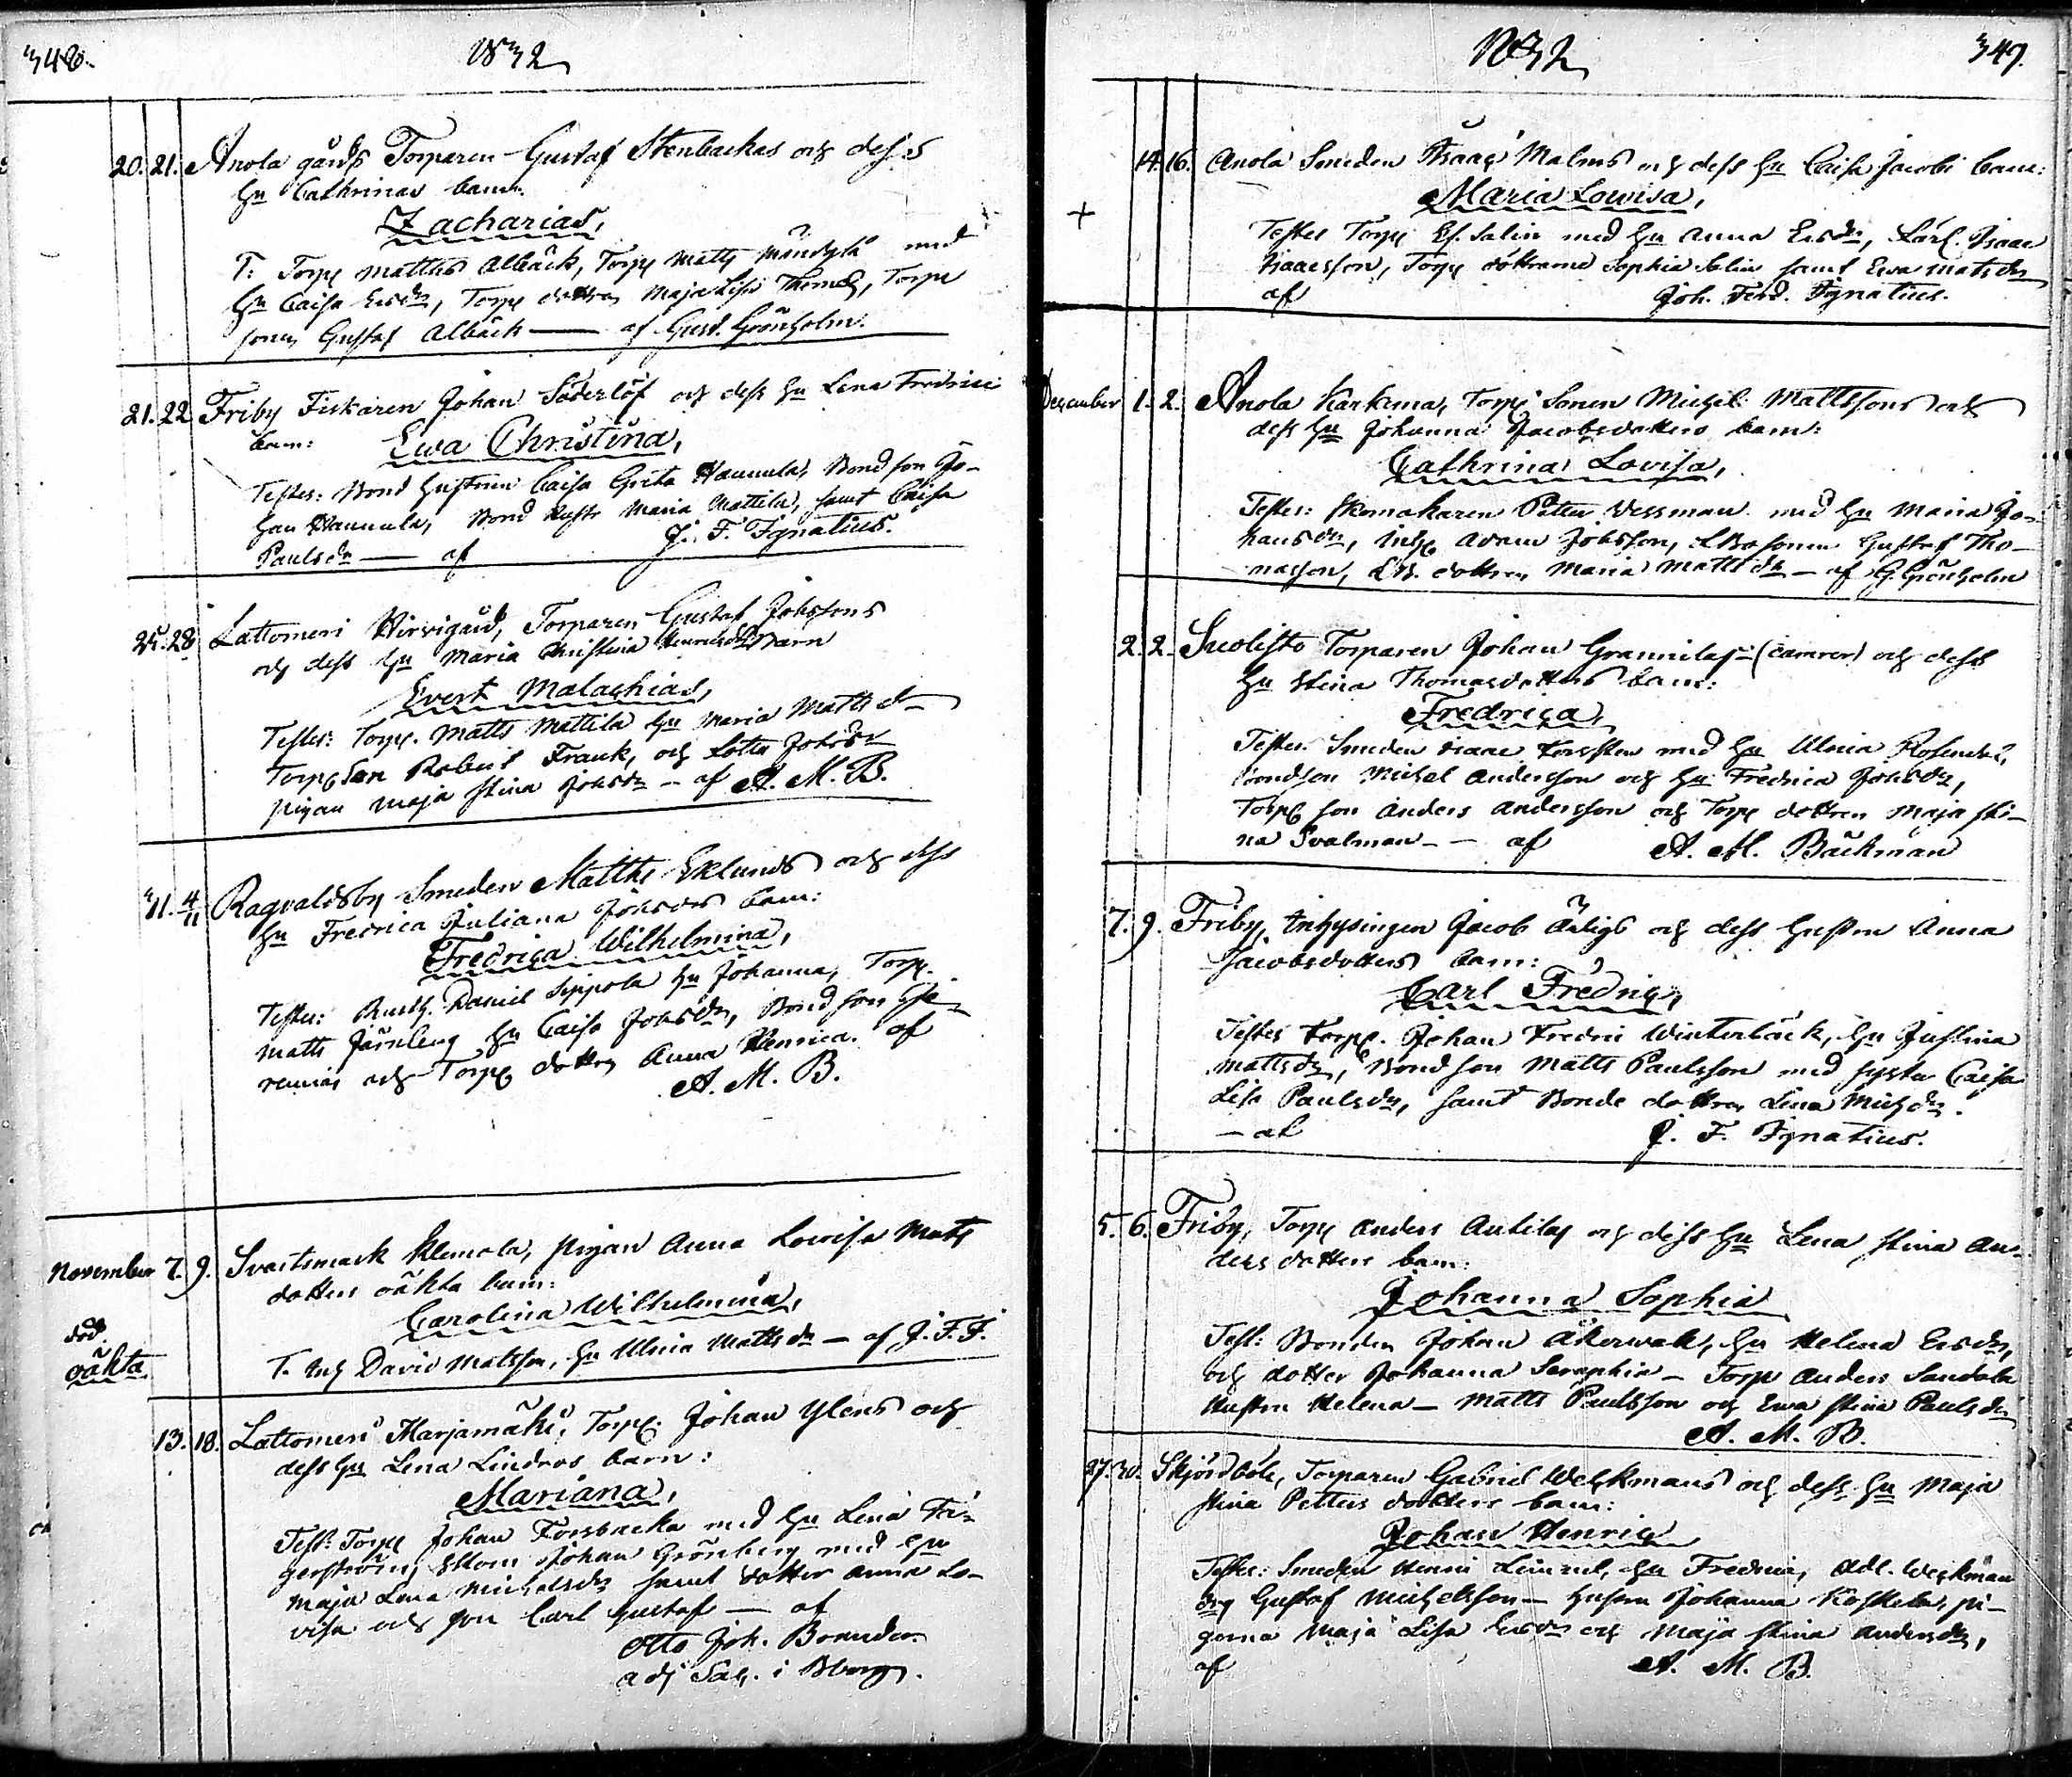 348.
1832
20. 21. Anola gårds Torparen Gustaf Stenbackas och dess
hu Cathrinas barn
Zacharias,
T: Torp matths Albäck, Torp matts med
hu Caisa Ersdr, Torp dottren Maja Lisa Thomdr, Torpe
sonen Gustaf Albäck — af Gust. Grönholm.
21. 22 Friby Fiskaren Johan Söderlöf och dess hu Lena Fredrici
barn:
Ewa Christina,
Testes: Bond hustrun Caisa Greta Hannula, Bond son Jo-
han Hannula, Bond hustr Maria Mattila, samt Caisa
Paulsdr — af J. F. Ignatius.
25. 28 Lattomeri Torparen Gustaf Johssons
och dess hu Maria Christina Barn
Evert Malachias,
Testes: Torp. Matts Mattila hu Maria Mattsd
Torp Son Robert Frank, och Lotta Johsdr
pigan Maja Stina Johsdr – af A. M. B.
4/11 Ragvaldsby Smeden Matths Eklunds och dess
hu Fredrica Juliana Johsdrs barn:
Fredrica Wilhelmina,
Testes: Rusth. Daniel Sippola hu Johanna, Torp.
matts Järnberg hu Caisa Johsdr, Bond son Je-
remias och Torp dottren Anna Henrica. af
A. M. B.
November 7. 9. Svartsmark Klemola, pigan Anna Lovisa Mats
dotters oäkta barn:
Carolina Wilhelmina,
död.
oäkta
T. Inh David Matsson, hu Ulrica Mattsdr — af J. F. I.
13. 18. Lattomeri Marjamäki, Torp: Johan Ylens och
dess hu Lena Lindros barn:
Mariana,
Test: Torp Johan Forsbacka med hu Lena Fri-
gerström, Skom Johan Grönberg med hu
Maja Lena Michelsdr samt dotter Anna Lo-
visa och son Carl Gustaf — af
Otto Joh. Brander
adj Sac. i Bborg.
1832
349.
14. 16. Anola Smeden Isaac Malms och dess hu Caisa Jacobi barn:
Maria Lovisa,
+
Testes Torp Ef. Salin med hu Anna Ersdr, Isaac
Isaacsson, Torp döttrarne Sophia Salin samt Ewa Matsdr
af Joh. Ferd. Ignatius.
December 1. 2. Anola Karkema, Torp Sonen Michel Mattssons och
dess hu Johanna Jacobsdotters barn:
Cathrina Lovisa,
Testes: Skomakaren Petter Vessman med hu Maria Jo-
hansdr, Inh Adam Johsson, Gustaf Tho-
masson, dottren Maria Mattsdr — af G. Grönholm
2. 2. Suolisto Torparen Johan Grannilas (Camrer) och dess
hu Stina Thomasdotters barn:
Fredrica,
Testes: Smeden Isaac Forsstén med hu Ulrica Rosendal,
bondson Michel Andersson och hu Fredrica Johsdr,
Torp son Anders Andersson och Torp dottren Maja Sti-
na Svalman – – af A. M. Bäckman
7. 9. Friby, Inhysingen Jacob Ärligs och dess hustru Anna
Jacobsdotters barn:
Carl Fredric,
Testes Torp. Johan Fredric Winterbäck, hu Justina
Mattsdr, Bond son Matts Paulsson med syster Caisa
Lisa Paulsdr, samt Bonde dottren Lena Michdr.
— af J. F. Ignatius.
5. 6. Friby, Torp Anders Antilas och dess hu Lena Stina An-
ders dotters barn:
Johanna Sophia
Test: Bonden Johan Åkerwall, hu Helena Ersdr,
och dotter Johanna Seraphia – Torp Anders Sandala
hustru Helena – Matts Paulsson och Ewa Stina Paulsdr
A. M. B.
27. 30. Skjördböle, Torparen Gabriel Weckmans och dess hu Maja
Stina Petters dotters barn:
Johan Henric
Testes: Smeden Henric hu Fredrica, Weckman
drg Gustaf Michelsson – hustru Johanna Koskela, pi-
gorna Maja Lisa Ersdr och Maja Stina Andersdr,
af A. M. B.